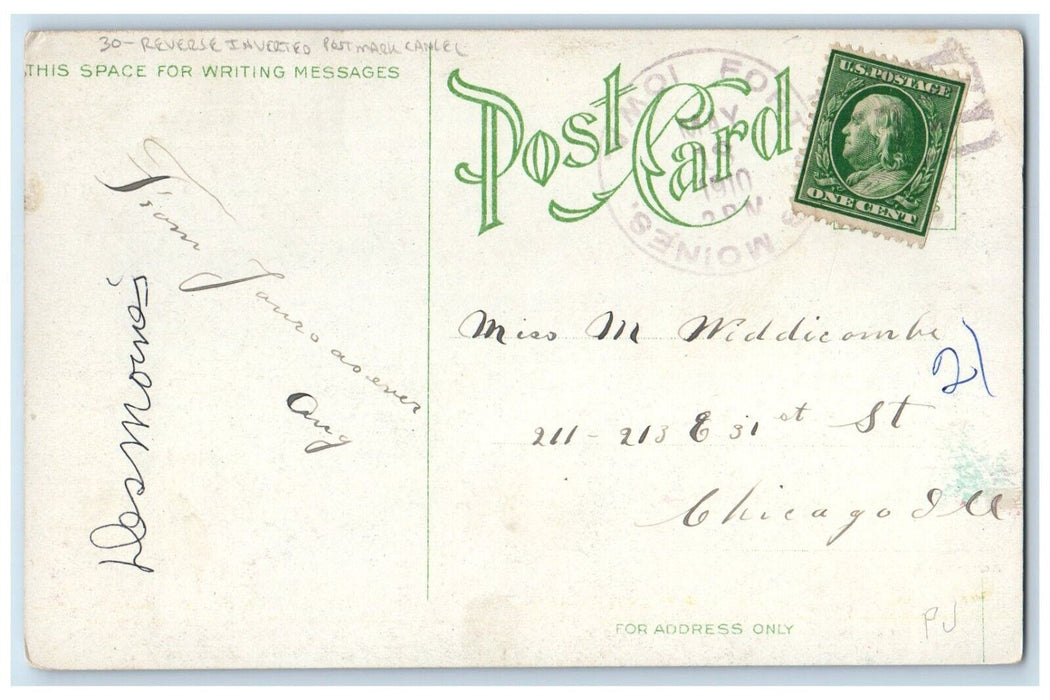 30- REVERSE INVERTED POSTMARK CANCEL
THIS SPACE FOR WRITING MESSAGES
Post Card
MAY
1910
MOINES,
U.S. POSTAGE
ONE CENT
From Yours as ever
Aug
Des Moines
Miss M Widdicombe
211 - 213 E 31st St
Chicago Ill
21
FOR ADDRESS ONLY
PJ